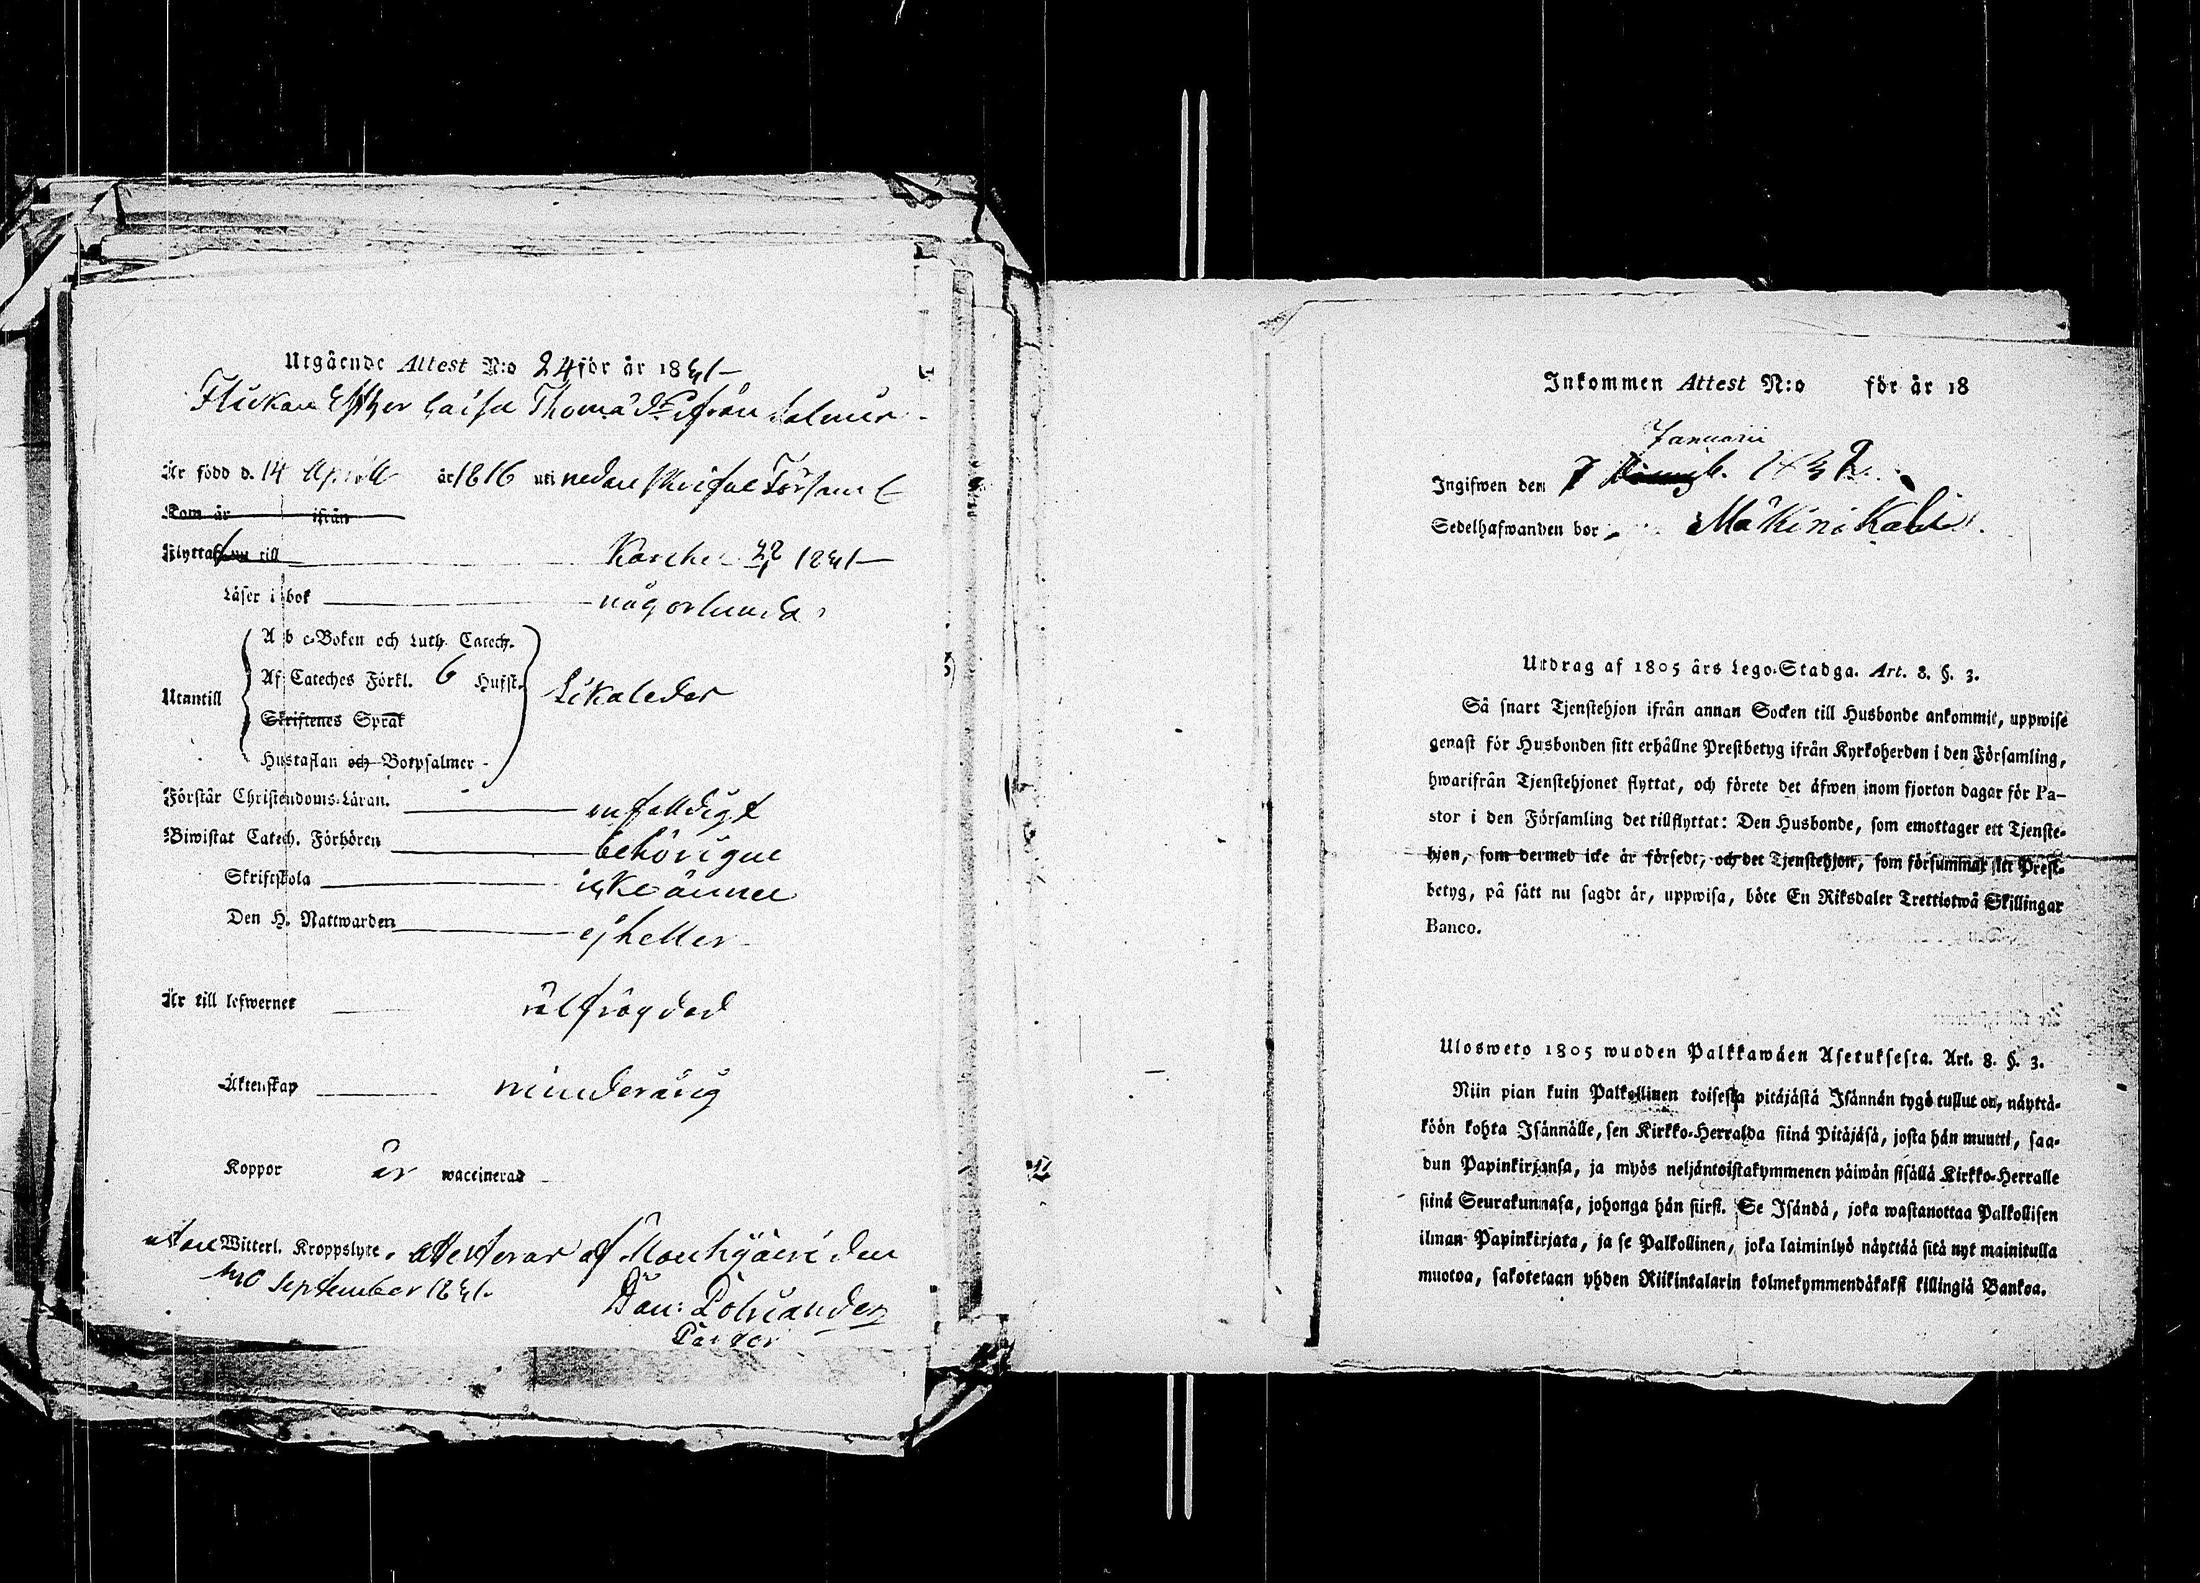 Utgående Attest N:o 24 för år 1831
Flickan Esther Caisa Thomæ Dr ifrån Salmis
Är född d. 14 Aprill år 1816 uti nedanskrifne Församl
Kom år ifrån
Flyttat nu till Karcku 1831
Läser i bok någorlunda
A b c-Boken och Luth. Catech.
Af Cateches Förkl. 6 Husst.
Utantill Likaledes
Skriftenes Språk
Hustaflan och Botpsalmer
Förstår Christendoms-Läran. enfalldigt
Biwistat Catech. Förhören behörigen
Skriftskola icke ännu
Den H. Nattwarden ej heller
Är till lefwernet välfrägdad
Äktenskap minderårig
Koppor är waccinerad
utan Witterl. Kroppslyte, attesterar af Mouhijärvi den
September 1831.
Dan: Polviander
Pastor
Inkommen Attest N:o för år 18
Januarii
Ingifwen den 7 1832
Sedelhafwanden bor Mäkini Kala
Utdrag af 1805 års Lego-Stadga. Art. 8. §. 3.
Så snart Tjenstehjon ifrån annan Socken till Husbonde ankommit, uppwise
genast för Husbonden sitt erhållne Prestbetyg ifrån Kyrkoherden i den Församling,
hwarifrån Tjenstehjonet flyttat, och förete det äfwen inom fjorton dagar för Pa-
stor i den Församling det tillflyttat: Den Husbonde, som emottager ett Tjenste-
hjon, som dermed icke är försedt, och det Tjenstehjon, som försummar sitt Prest-
betyg, på sätt nu sagdt är, uppwisa, böte En Riksdaler Trettiotwå Skillingar
Banco.
Ulosweto 1805 wuoden Palkkawäen Asetuksesta. Art. 8. §. 3.
Niin pian kuin Palkollinen toisesta pitäjästä Isännän tygö tullut on, näyttä-
köön kohta Isännälle, sen Kirkko-Herralda siinä Pitäjäsä, josta hän muutti, saa-
dun Papinkirjansa, ja myös neljäntoistakymmenen päiwän sisällä Kirkko-Herralle
siinä Seurakunnasa, johonga hän siirsi. Se Isändä, joka wastanottaa Palkollisen
ilman Papinkirjata, ja se Palkollinen, joka laiminlyö näyttää sitä nyt mainitulla
muotoa, sakotetaan yhden Riikintalarin kolmekymmendäkaksi killingiä Bankoa.